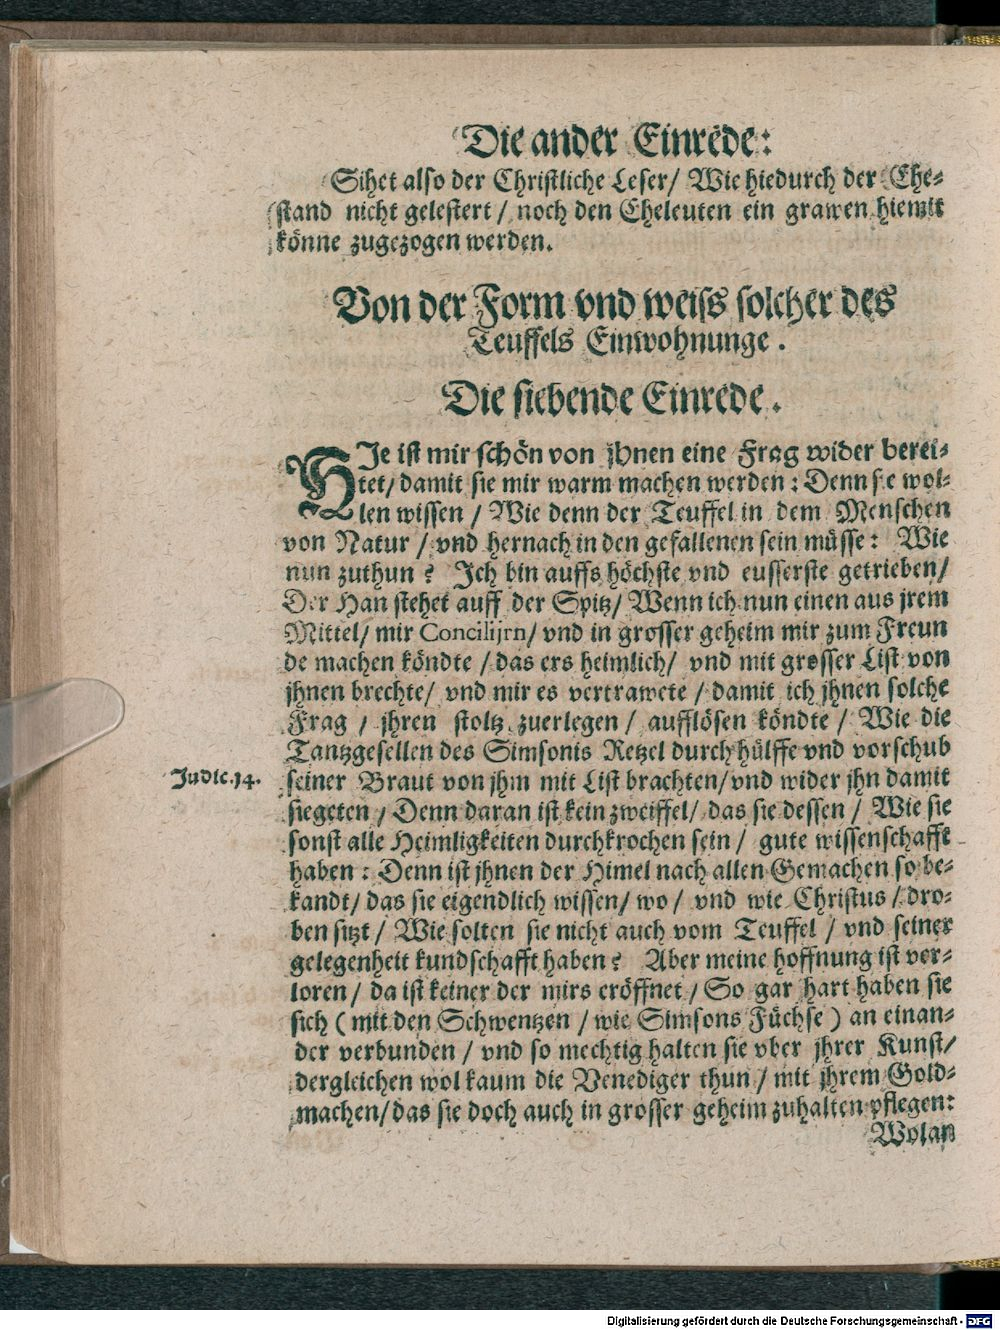 Die ander Einrede:
Sihet also der Christliche Leser/ Wie hiedurch der Ehe-
stand nicht gelestert/ noch den Eheleuten ein grawen hiemit
könne zugezogen werden.
Von der Form vnd weiss solcher des
Teuffels Einwohnunge.
Die siebende Einrede.
HIe ist mir schön von jhnen eine Frag wider berei-
tet/ damit sie mir warm machen werden: Denn sie wol-
len wissen/ Wie denn der Teuffel in dem Menschen
von Natur/ vnd hernach in den gefallenen sein müsse: Wie
nun zuthun? Ich bin auffs höchste vnd eusserste getrieben/
Der Han stehet auff der Spitz/ Wenn ich nun einen aus jrem
Mittel/ mir Concilijrn/ vnd in grosser geheim mir zum Freun
de machen köndte/ das ers heimlich/ vnd mit grosser List von
jhnen brechte/ vnd mir es vertrawete/ damit ich jhnen solche
Frag/ jhren stoltz zuerlegen/ aufflösen köndte/ Wie die
Tantzgesellen des Simsonis Retzel durch hülffe vnd vorschub
Judic. 14. seiner Braut von jhm mit List brachten/ vnd wider jhn damit
siegeten/ Denn daran ist kein zweiffel/ das sie dessen/ Wie sie
sonst alle Heimligkeiten durchkrochen sein/ gute wissenschafft
haben: Denn ist jhnen der Himel nach allen Gemachen so be-
kandt/ das sie eigendlich wissen/ wo/ vnd wie Christus/ dro-
ben sitzt/ Wie solten sie nicht auch vom Teuffel/ vnd seiner
gelegenheit kundschafft haben? Aber meine hoffnung ist ver-
loren/ da ist keiner der mirs eröffnet/ So gar hart haben sie
sich (mit den Schwentzen/ wie Simsons Füchse) an einan-
der verbunden/ vnd so mechtig halten sie vber jhrer Kunst/
dergleichen wol kaum die Venediger thun/ mit jhrem Gold-
machen/ das sie doch auch in grosser geheim zuhalten pflegen:
Wolan
Digitalisierung gefördert durch die Deutsche Forschungsgemeinschaft - DFG